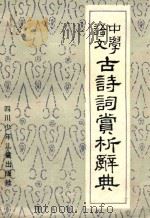 中學
語文
古詩詞賞析辭典
四川少年儿童出版社